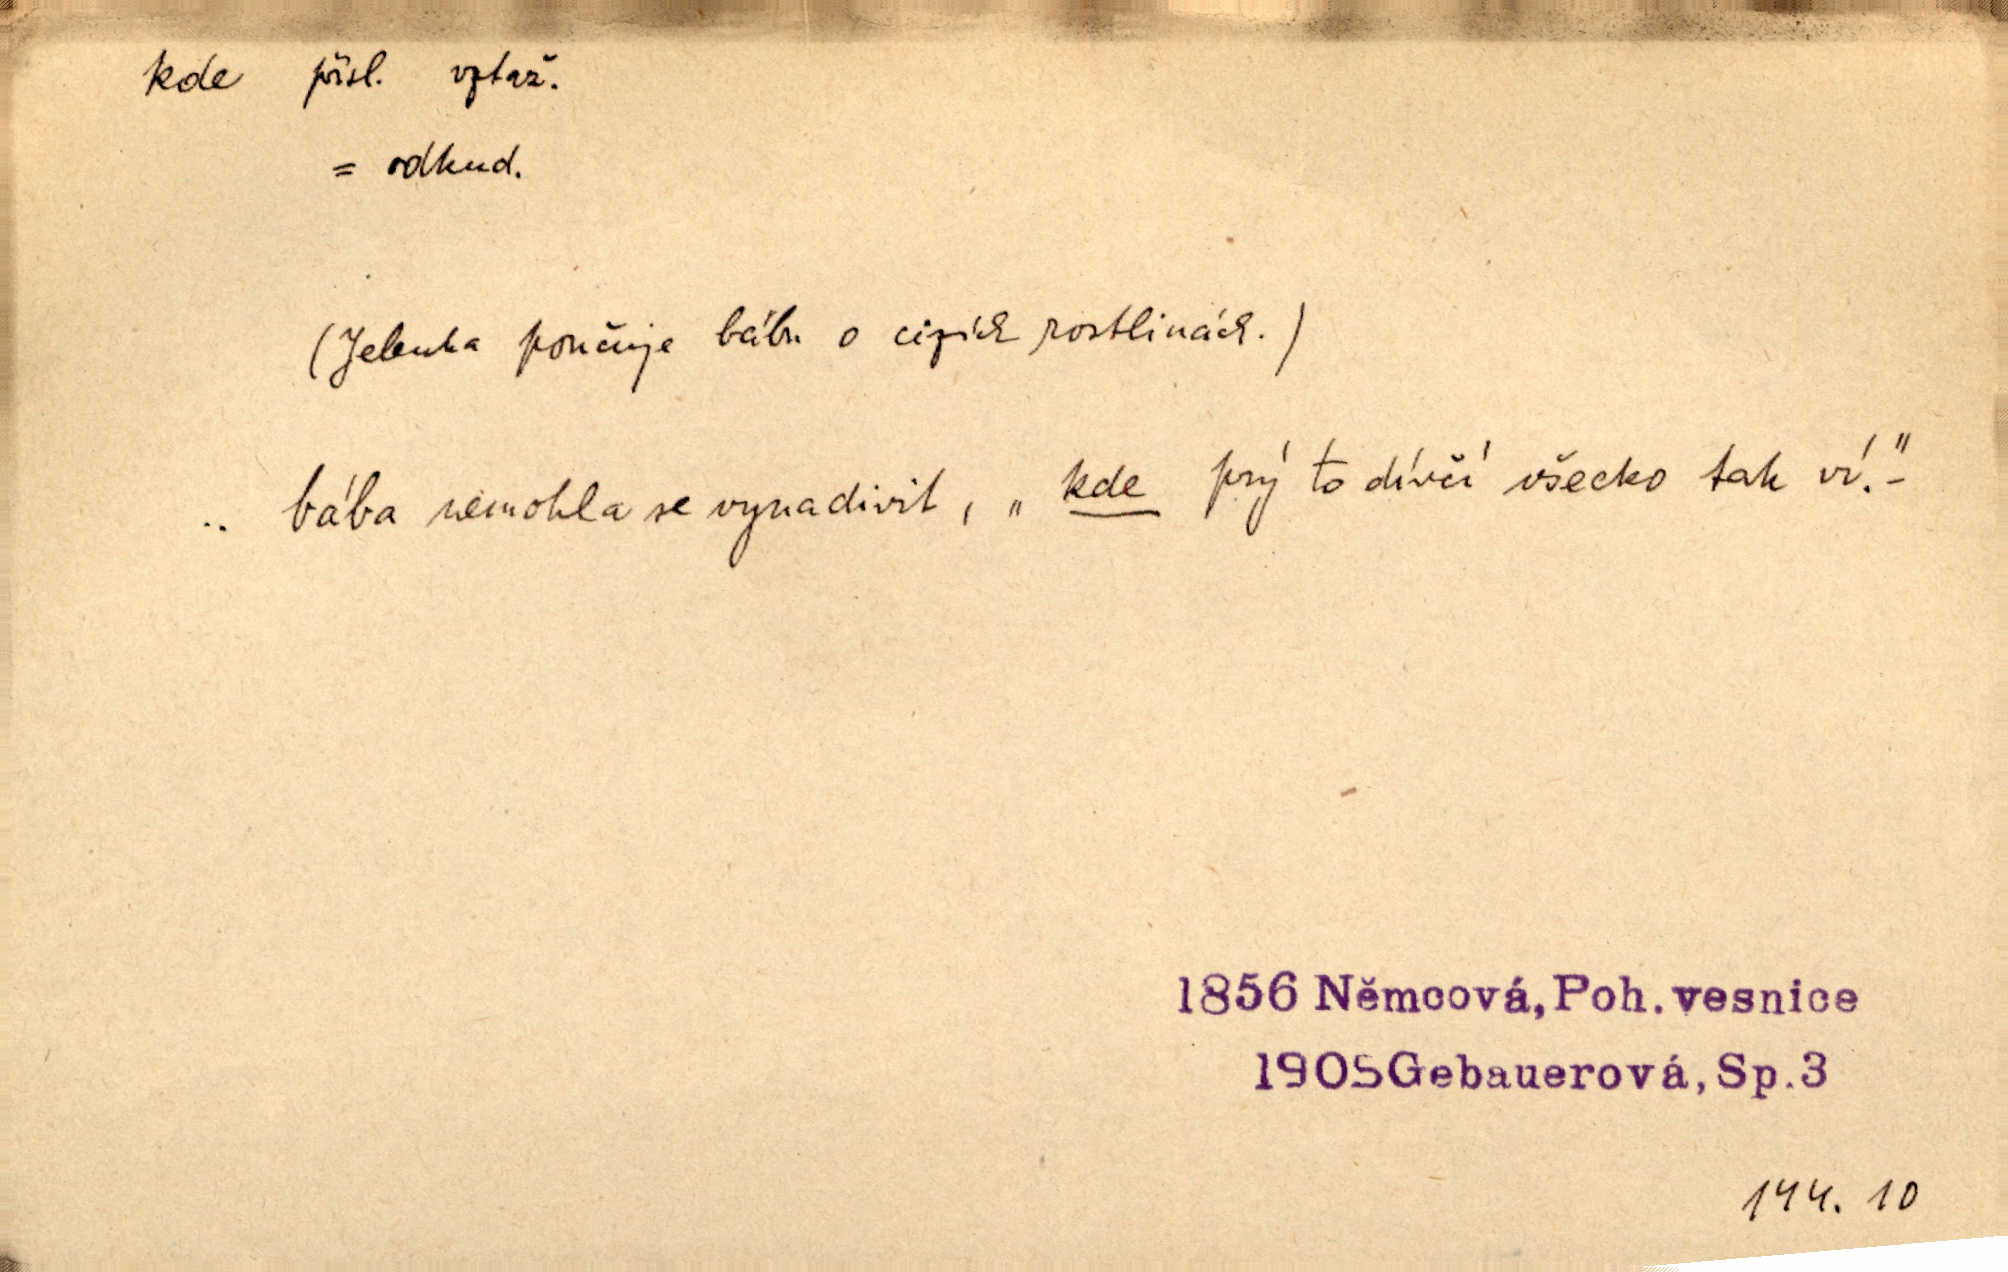 kde přísl. vztaž.
= odkud.
(Jelenka poučuje bábu o cizích rostlinách.)
.. bába nemohla se vynadivit, „kde prý to dívčí všecko tak ví."-
1856 Němcová, Poh. vesnice
1905 Gebauerová, Sp. 3
144. 10